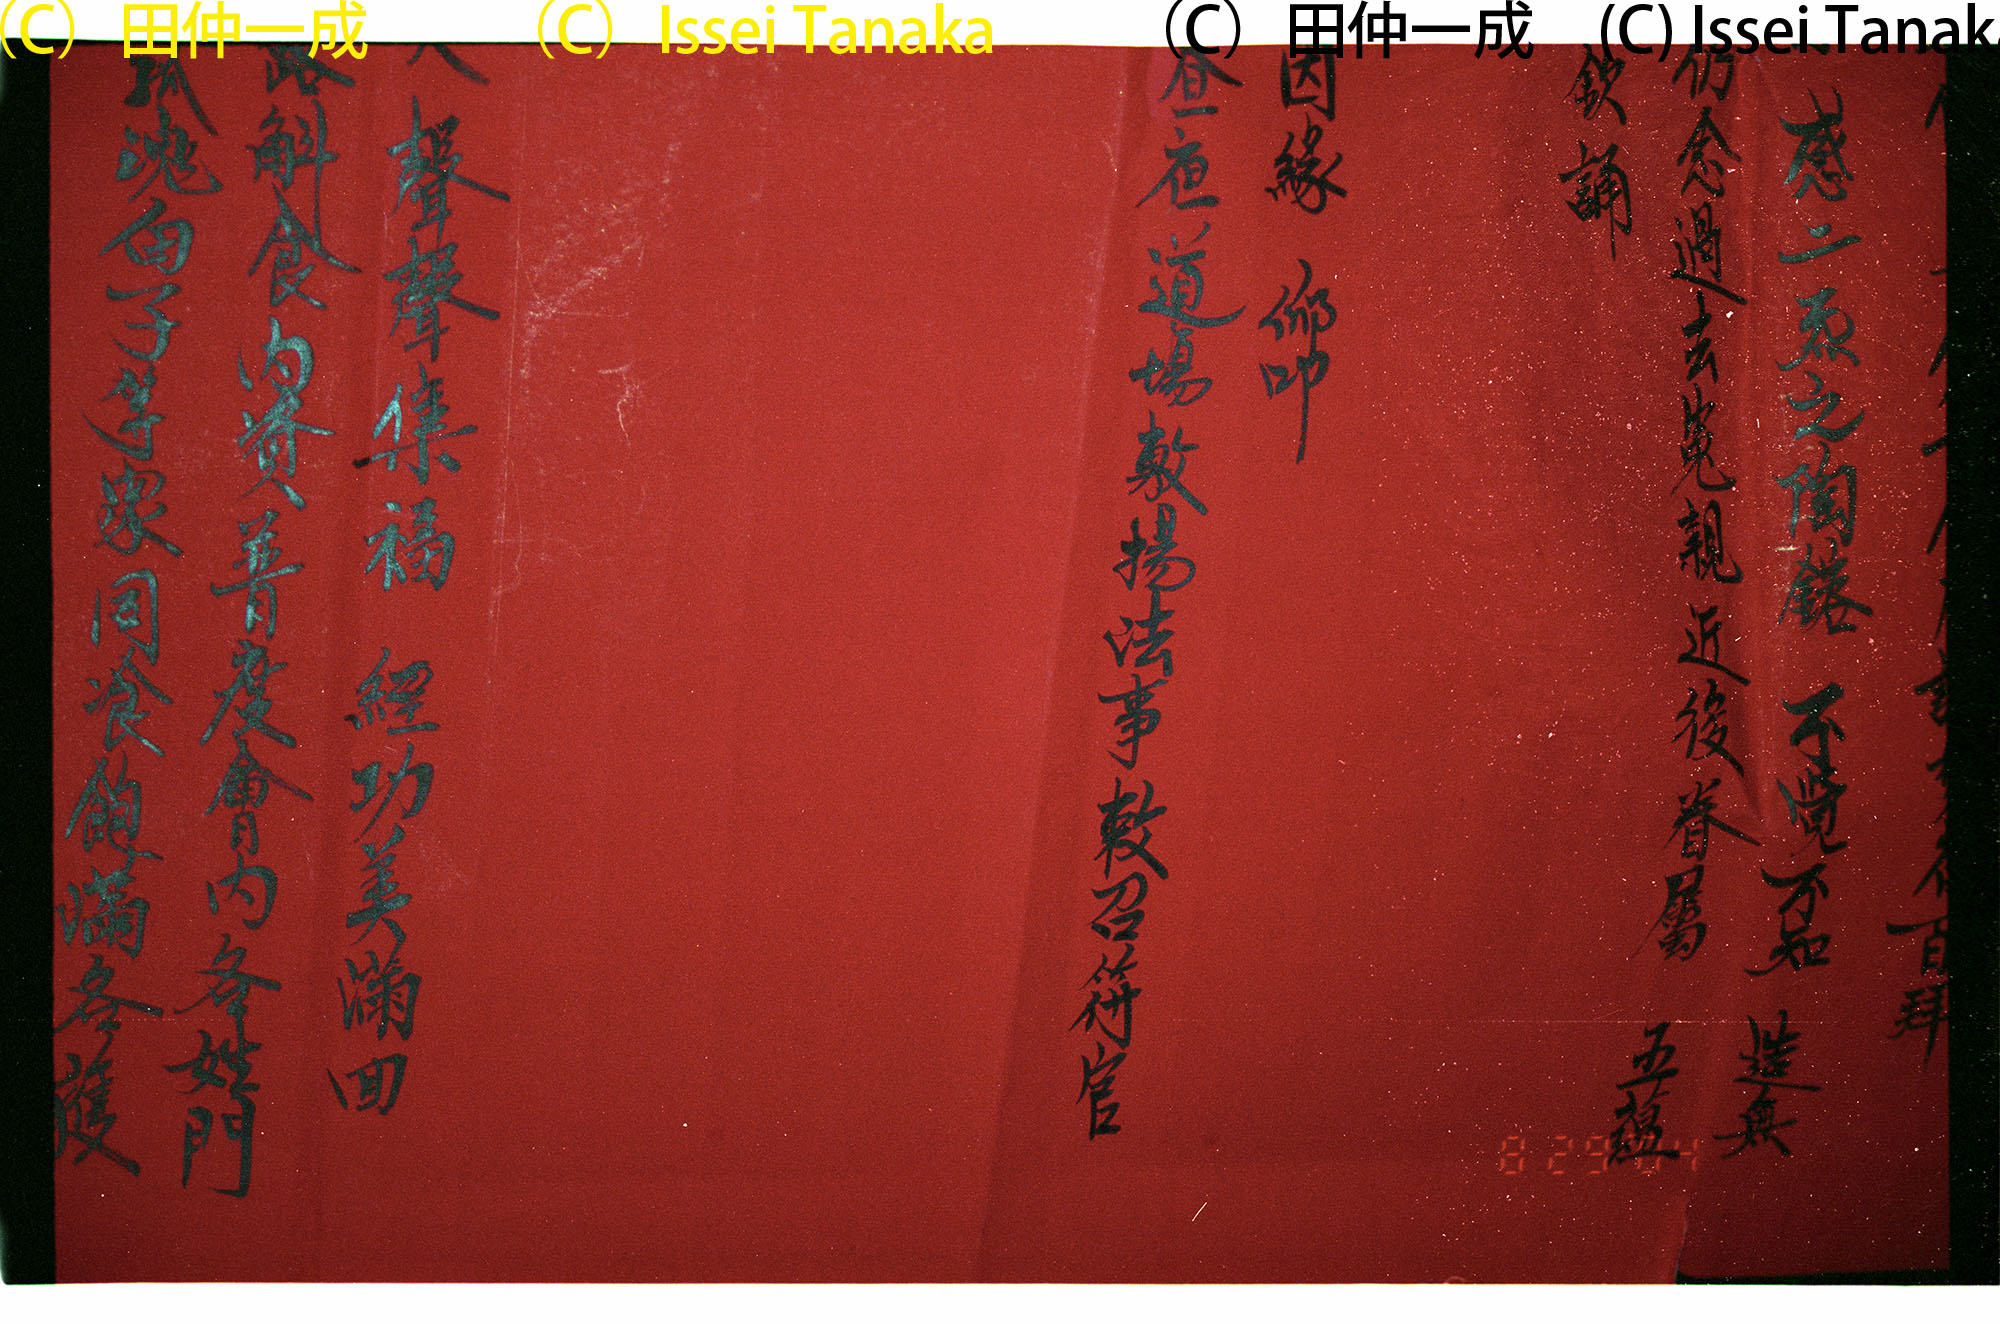 (C) 田仲一成 (C) Issei Tanaka (C) 田仲一成 (C) Issei Tanaka
百拜
感二炁之陶鎔 不覺不知 造無
仍念過去冤親近後眷屬 五蘊
欽誦
因緣 仰叩
昼夜道場敷揚法事敕召符官
聲聲集福 經功美滿回
斛食內資普度會內各姓門
孤魂由子等眾同飡飽滿各獲
8 29 '04